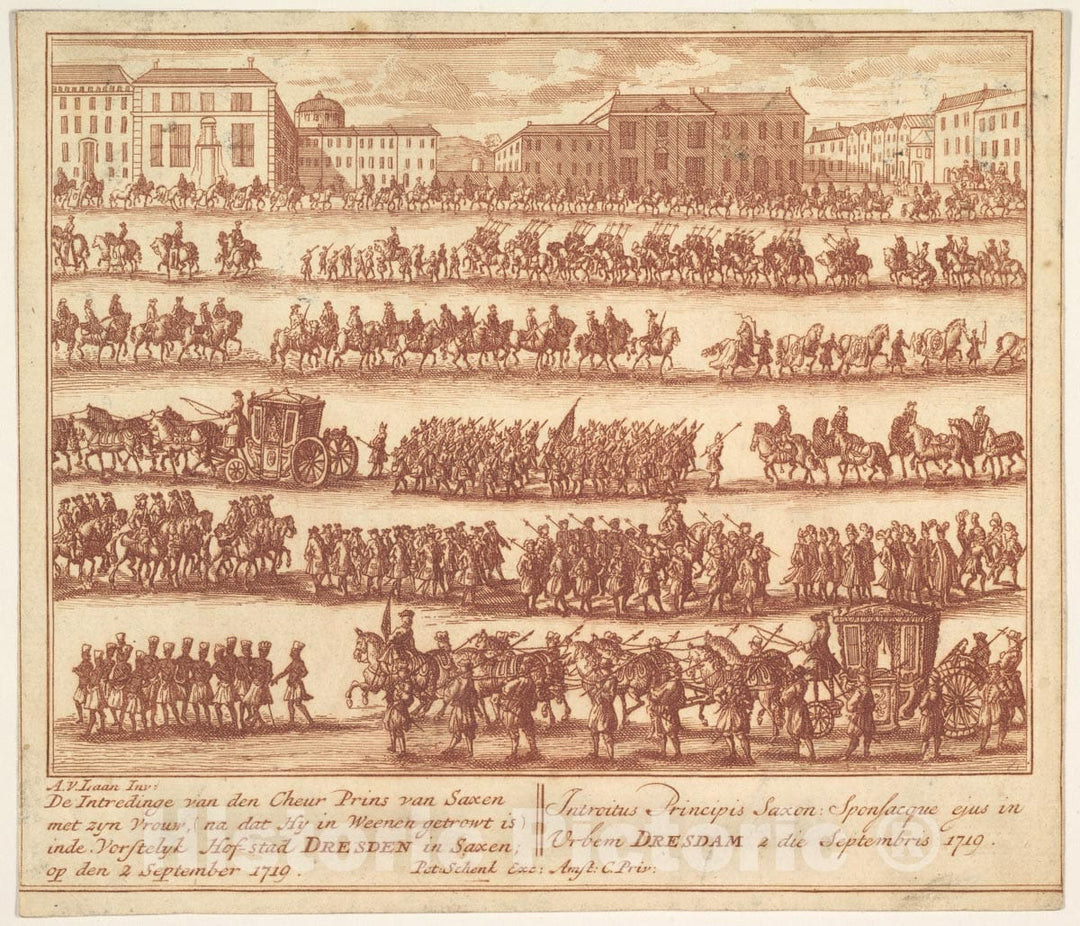 A.V. Laan Inv:
De Intredinge van den Cheur Prins van Saxen
met zyn Vrouw, na dat Hy in Weenen getrowt is
inde Vorstelyk Hof-stad DRESDEN in Saxen;
op den 2 September 1719.
Introitus Principis Saxon: Sponsaeque ejus in
Urbem DRESDAM 2 die Septembris 1719.
Pet: Schenk Exc: Amst: C. Priv:
Historic Pictoric ®